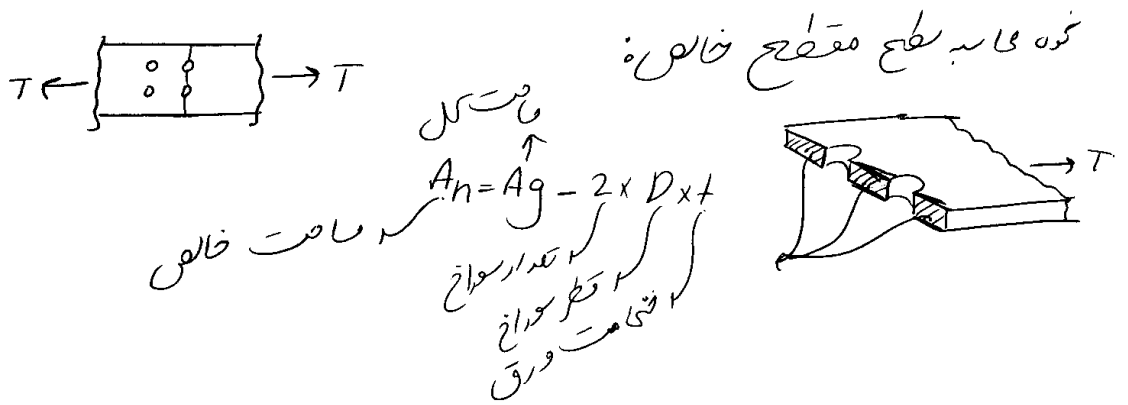 نحوه محاسبه سطح مقطع خالص:
T
T
مساحت کل
An = Ag - 2 x D x t
T
مساحت خالص
تعداد سوراخ
قطر سوراخ
ضخامت ورق